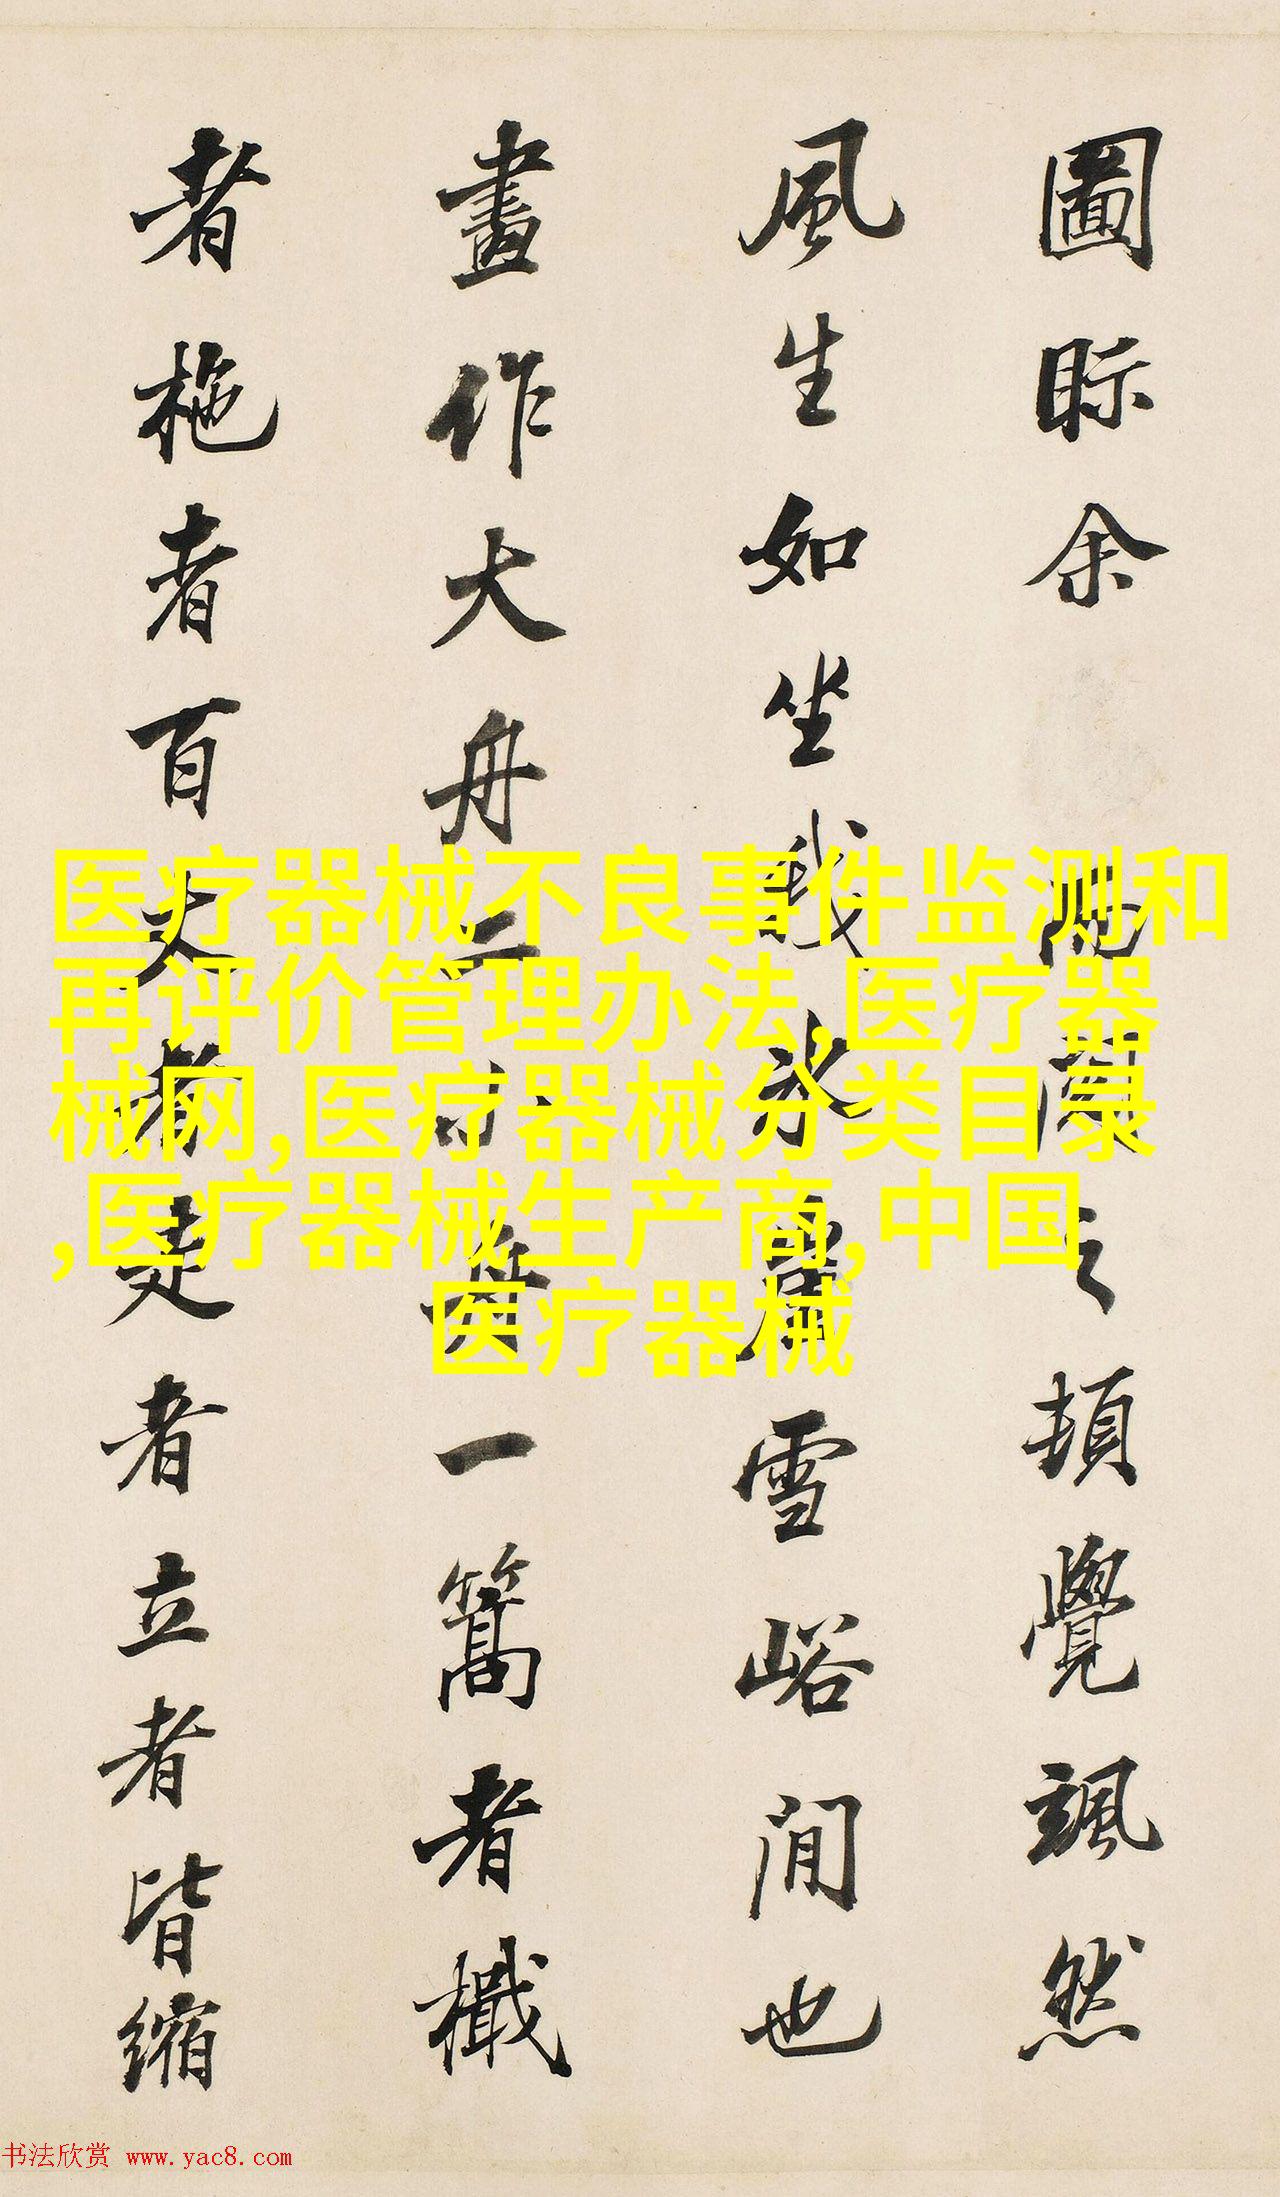 圖眎余之頓覺颯然
風生如坐我氷雪峪間也
畫作大舟二小舟一篙者檝
者柂者百丈者走者立者皆縮
医疗器械不良事件监测和
再评价管理办法,医疗器
械网,医疗器械分类目录
,医疗器械生产商,中国
医疗器械
书法欣赏 www.yac8.com